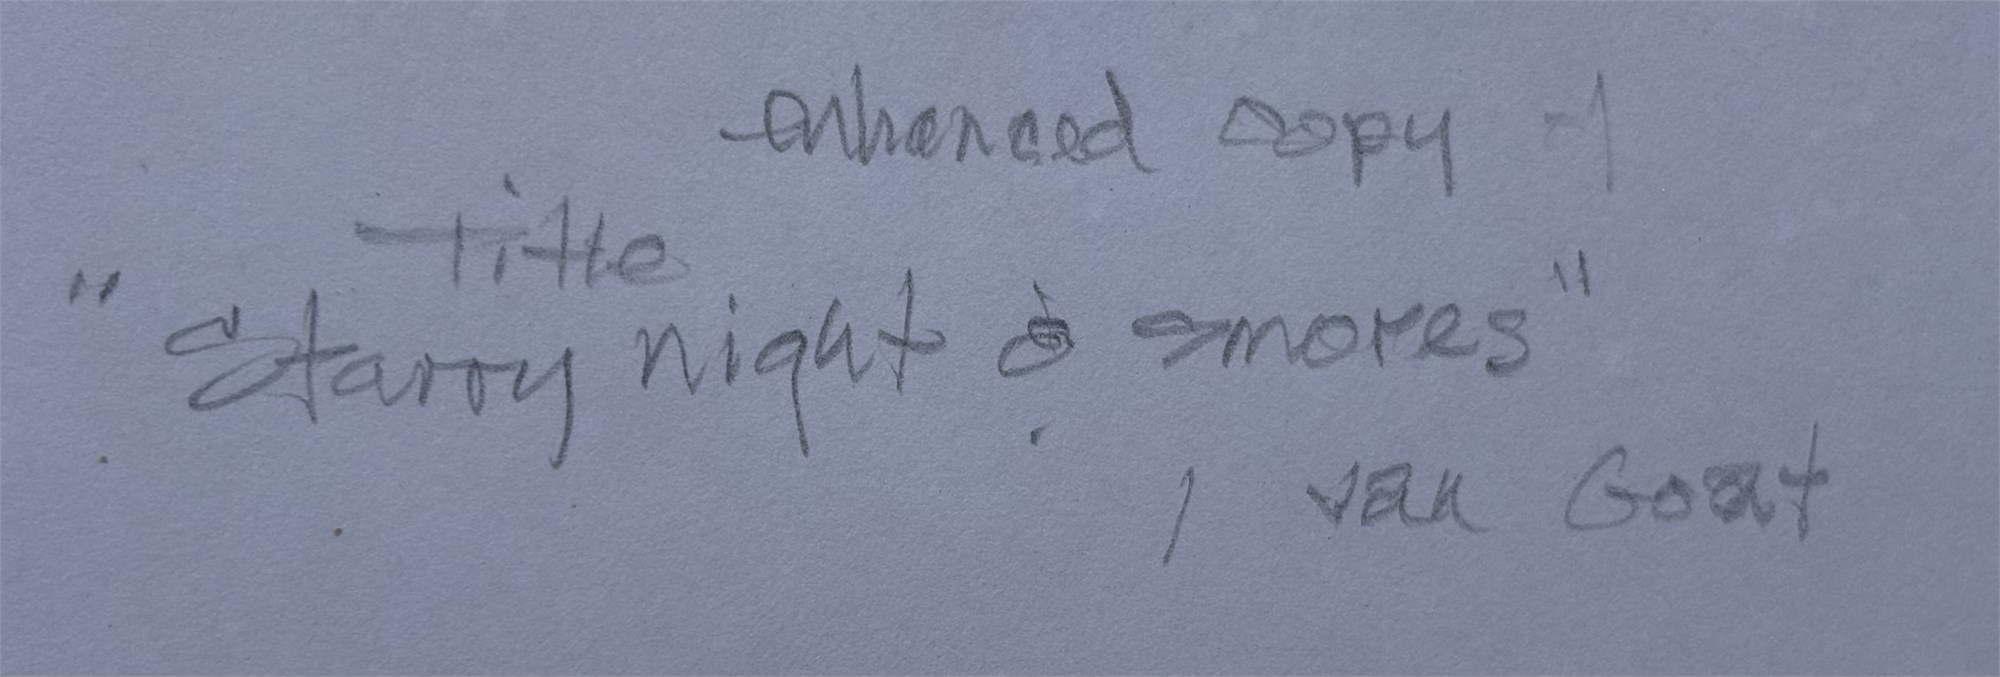 enhanced copy -1
Title
"Starry night & smores"
, van Goat